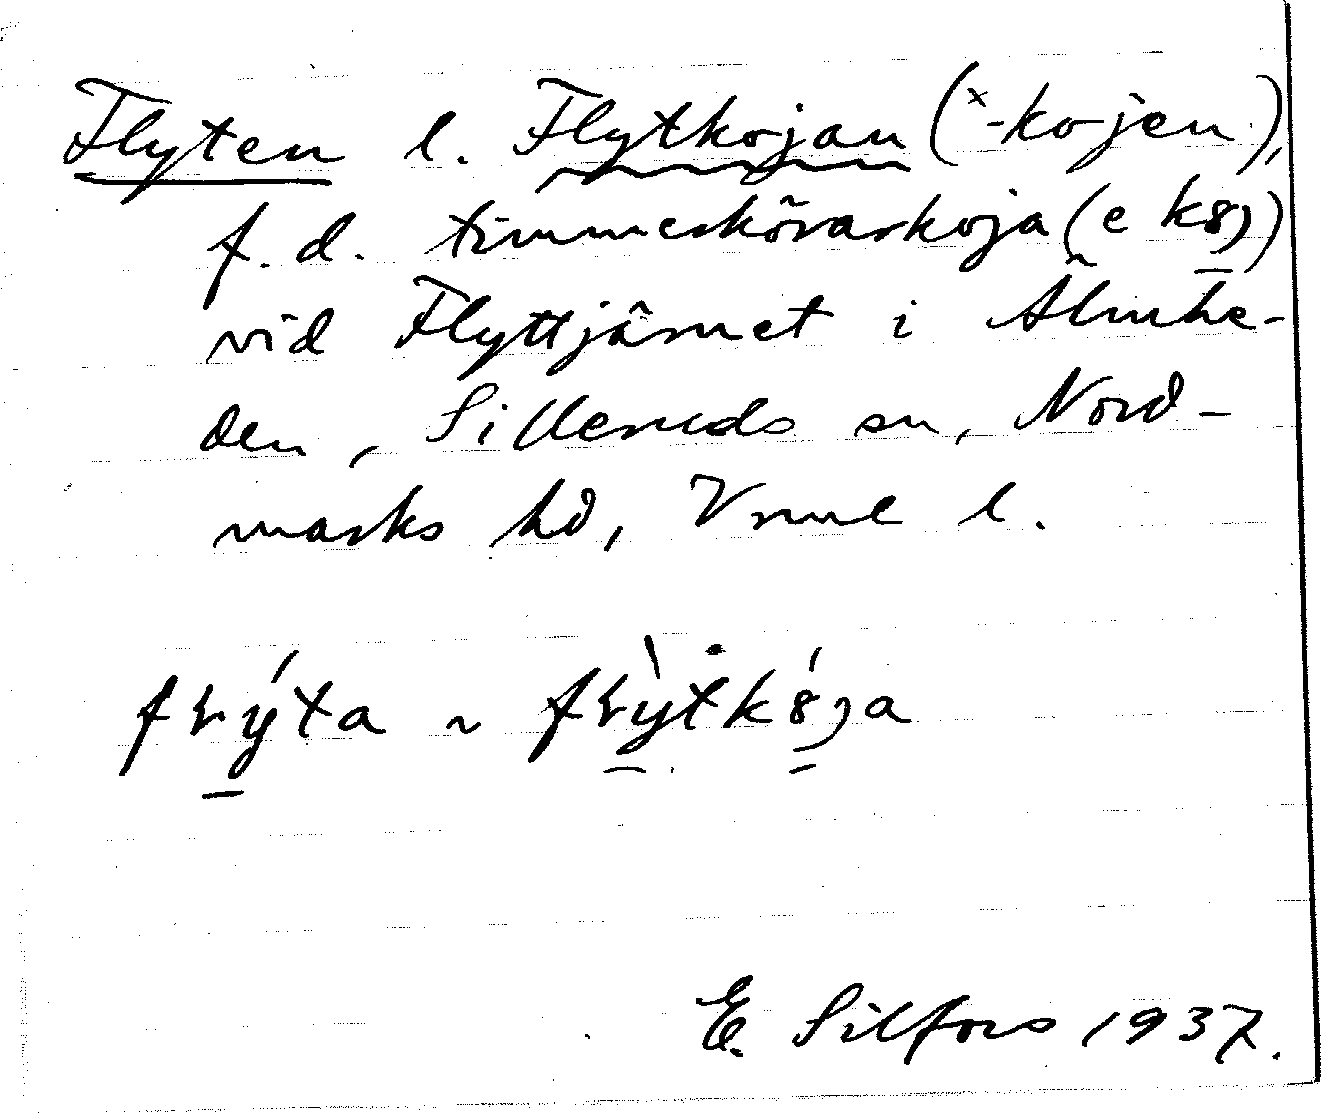 Flyten l. Flytkojan (×-kojen),
f. d. timmerkörarkoja (e k8j)
vid Flyttjärnet i Älmhe-
den, Silleruds sn, Nord-
marks hd, Vrml l.
fɽýta ~ fɽỳtk8́ja
E. Silfors 1937.